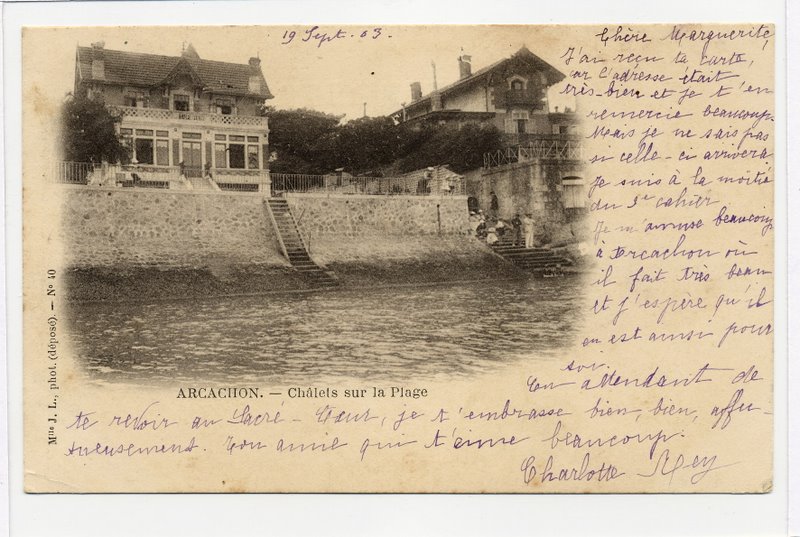 19 Sept. 03.
Chère Marguerite,
J'ai reçu ta carte,
car l'adresse était
très-bien et je t'en
remercie beaucoup.
Mais je ne sais pas
si celle-ci arrivera
Je suis à la moitié
du cahier
Je m'amuse beaucoup
à Arcachon où
il fait très beau
et j'espère qu'il
en est ainsi pour
toi.
En attendant de
te revoir au Sacré-Cœur, je t'embrasse bien, bien, affec-
tueusement. Ton amie qui t'aime beaucoup.
Charlotte Rey
ARCACHON. — Châlets sur la Plage
Mlle J. L., phot. (déposé). — No 40